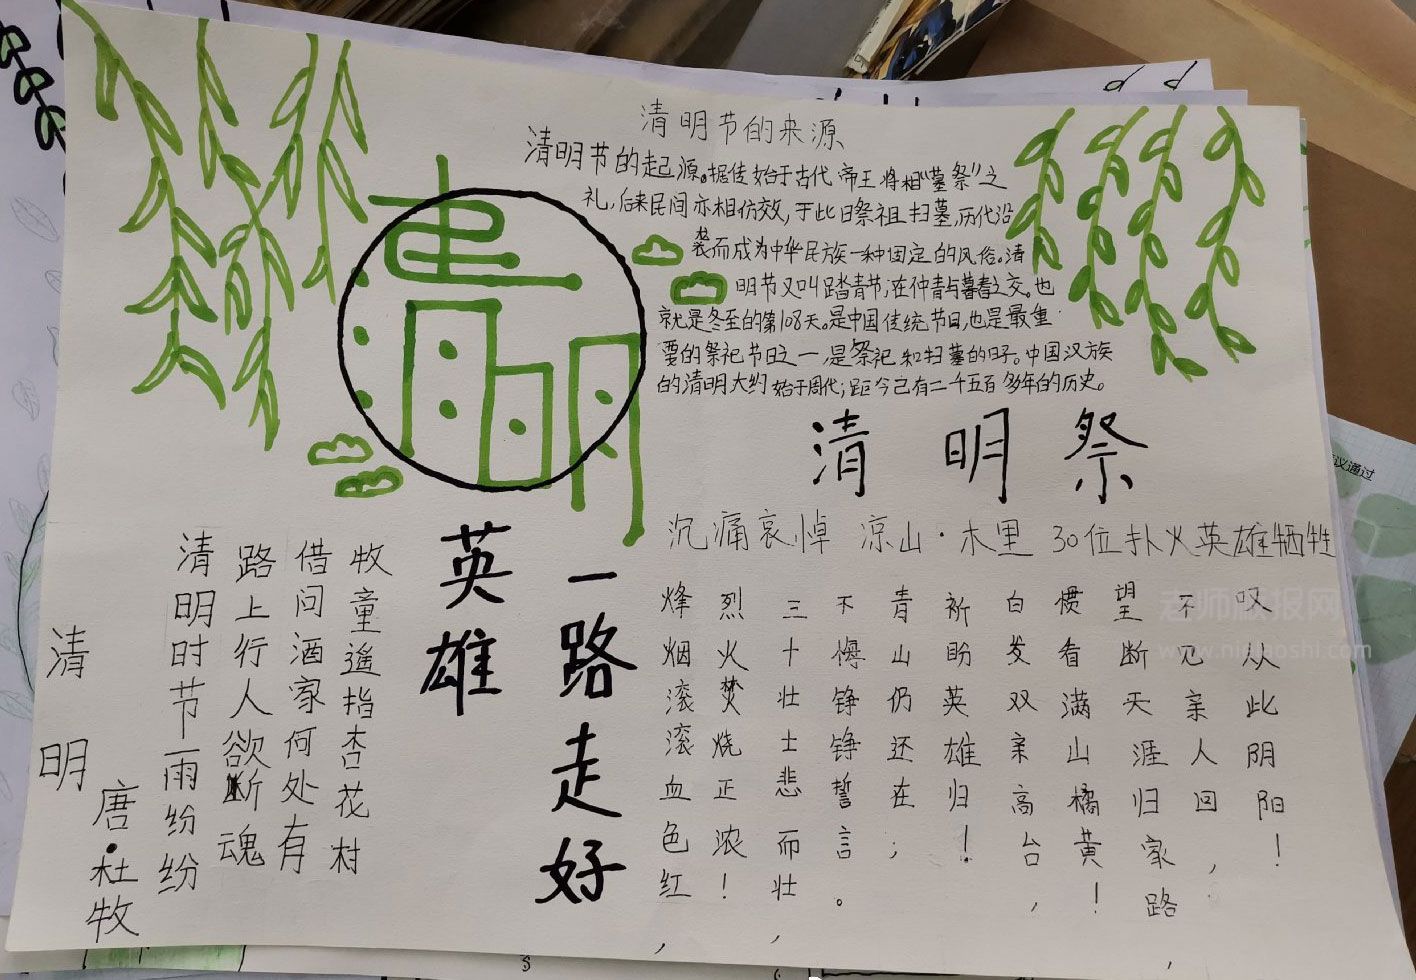 清明节的来源
清明节的起源。据传始于古代帝王将相“墓祭”之
礼,后来民间亦相仿效,于此日祭祖扫墓,历代沿
袭而成为中华民族一种固定的风俗。清
明节又叫踏青节,在仲青与暮春之交。也
就是冬至的第108天。是中国传统节日,也是最重
要的祭祀节日之一,是祭祀和扫墓的日子。中国汉族
的清明大约始于周代,距今已有二千五百多年的历史。
清明
清明祭
沉痛哀悼 凉山·木里 30位扑火英雄牺牲
烽烟滚滚血色红,
烈火焚烧正浓!
三十壮士悲而壮,
不悔铮铮誓言。
青山仍还在;
祈盼英雄归!
白发双亲高台,
惯看满山橘黄!
望断天涯归家路,
不见亲人回,
叹从此阴阳!
英雄
一路走好
清明
唐·杜牧
清明时节雨纷纷
路上行人欲断魂
借问酒家何处有
牧童遥指杏花村
议通过
老师版报网